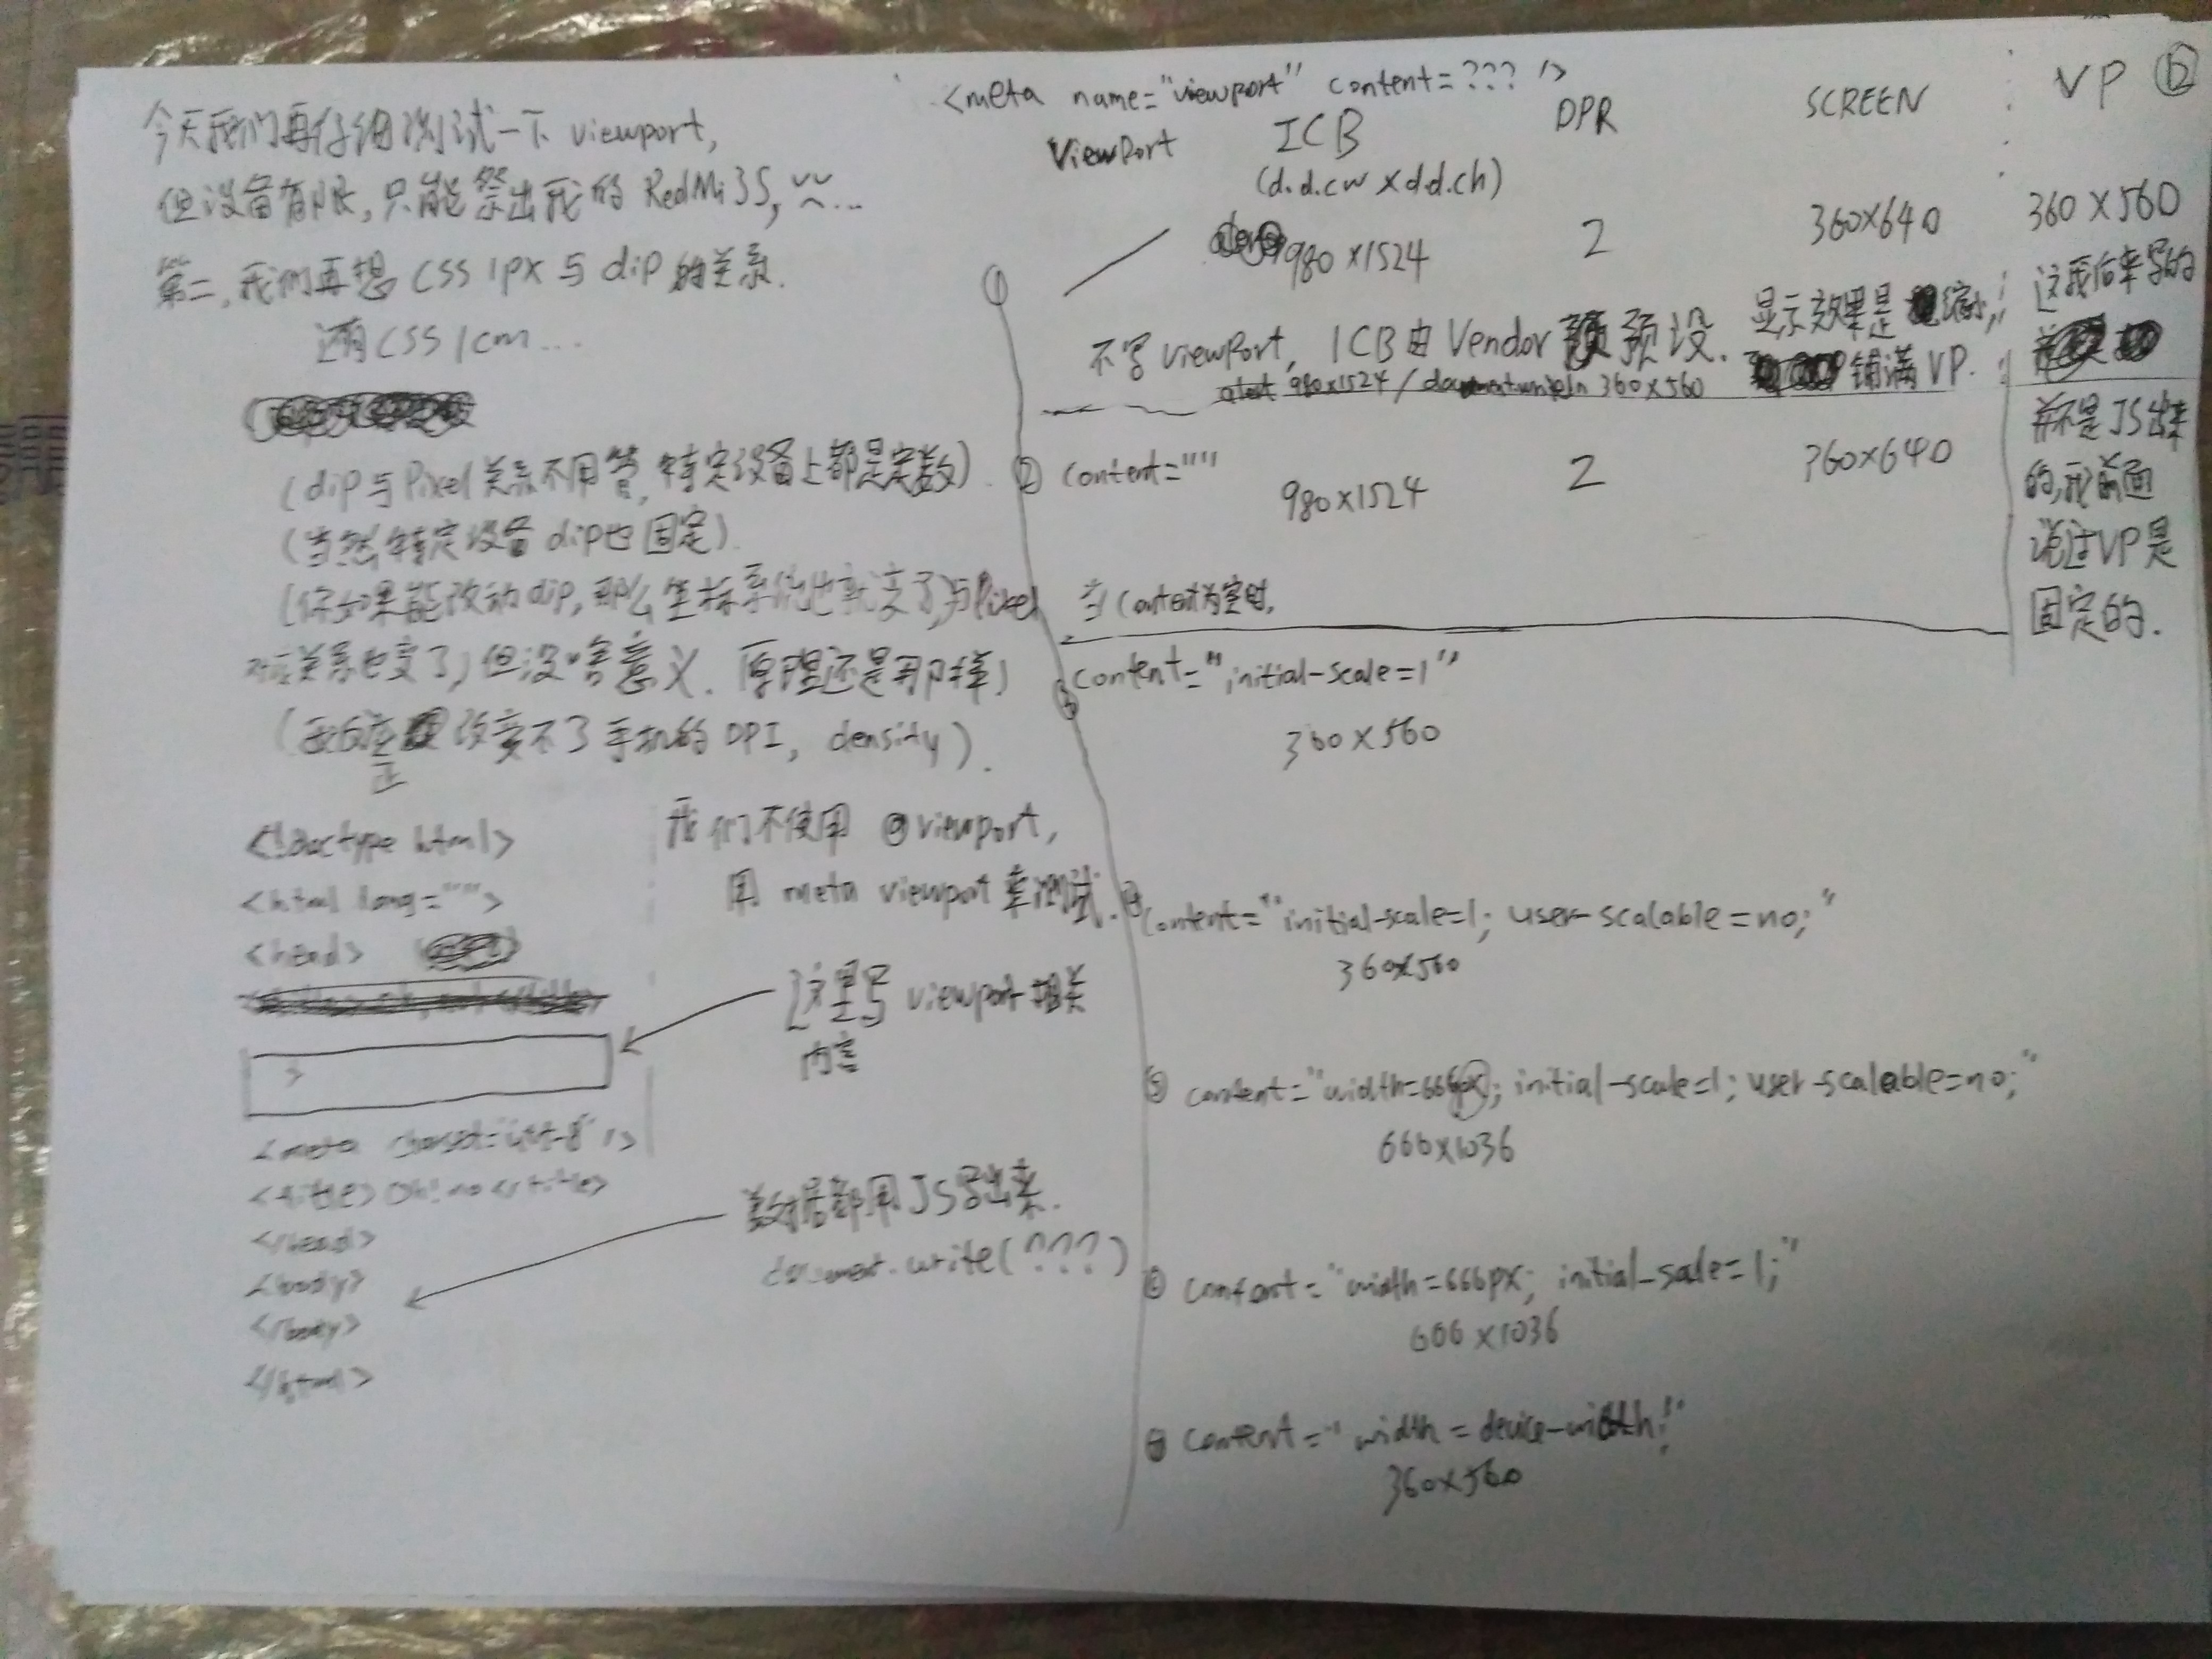 今天我们再仔细测试一下 viewport,
但设备有限,只能祭出我的 RedMi 3S, ...
第二,我们再想 CSS 1px 与 dip 的关系.
还有 CSS 1cm ...
(dip 与 Pixel 关系不用管,特定设备上都是定数)
(当然特定设备 dip 也固定)
(你如果能改动 dip, 那么坐标系统也就变了,与 Pixel
关系也变了,但没啥意义. 原理还是那样)
(我 改变不了手机的 DPI, density).
正
<!doctype html>
<html lang="">
<head>
<meta charset="utf-8" />
<title> Oh! no </title>
</head>
<body>
</body>
</html>
我们不使用 @viewport,
用 meta viewport 来测试.
这里写 viewport 相关
内容
数据都用 JS 写出来.
document.write(???)
<meta name="viewport" content=??? />
ViewPort ICB DPR SCREEN VP 12
(d.d.cw x d.d.ch)
① 980 x 1524 2 360x640 360 x 560
不写 viewport, ICB 由 Vendor 预设. 显示效果是缩小,
铺满 VP.
alert 980x1524 / document.writeln 360x560
这我后来写的
并不是 JS 出来
的,我前面
说过 VP 是
固定的.
② content=""
980x1524 2 360x640
当 content 为空时,
③ content="initial-scale=1"
360 x 560
④ content="initial-scale=1; user-scalable=no;"
360x560
⑤ content="width=666px; initial-scale=1; user-scalable=no;"
666x1036
⑥ content="width=666px; initial-scale=1;"
666 x1036
⑦ content="width=device-width;"
360x560